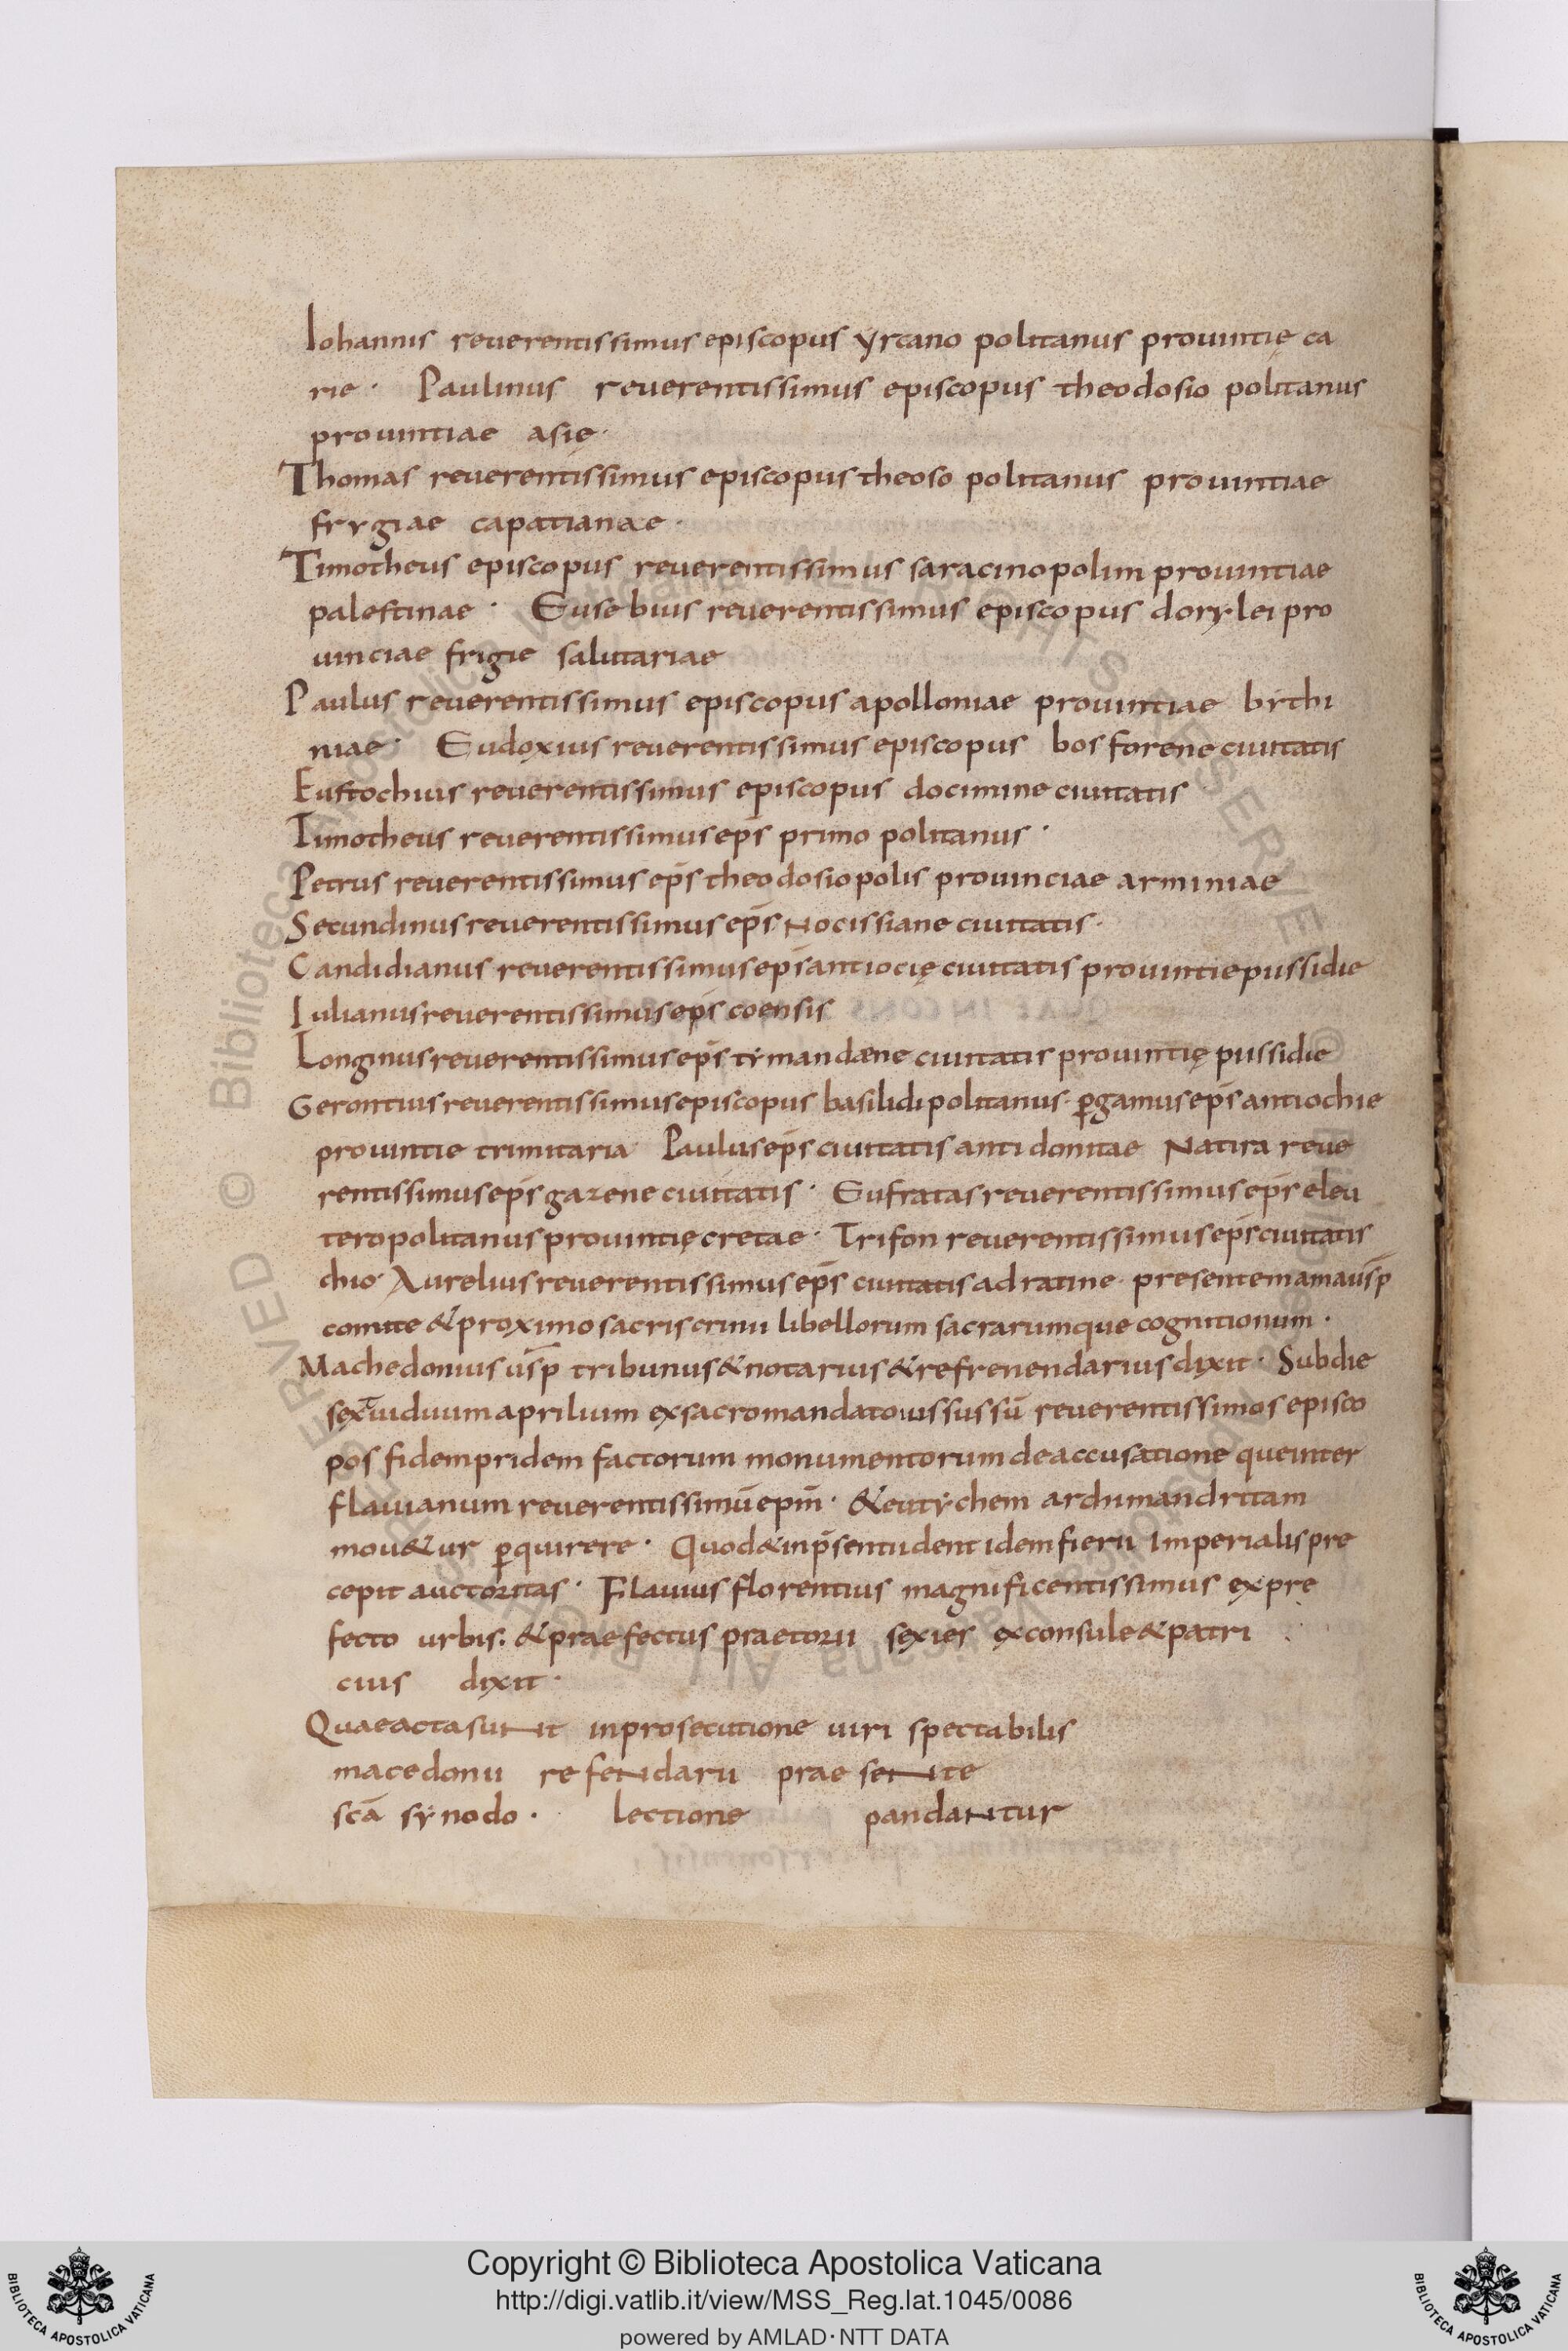 Iohannis reuerentissimus episcopus yrcano politanus prouintię ca
rie · Paulinus reuerentissimus episcopus theodosio politanus
prouintiae asię·
Thomas reuerentissimus episcopus theoso politanus prouintiae
frygiae capatianae ·
Timotheus episcopus reuerentissimus saracinopolim prouintiae
palestinae · Eusebius reuerentissimus episcopus dorylei pro
uinciae frigie salutariae
Paulus reuerentissimus episcopus apolloniae prouintiae bithi
niae · Eudoxius reuerentissimus episcopus bosforene ciuitatis
Eustochius reuerentissimus episcopus docimine ciuitatis
Timotheus reuerentissimus ep̄s primo politanus ·
Petrus reuerentissimus ep̄s theodosiopolis prouinciae arminiae
Secundinus reuerentissimus ep̄s Nocissiane ciuitatis ·
Candidianus reuerentissimus ep̄s antiocię ciuitatis prouintie pussidie
Iulianus reuerentissimus ep̄s coensis
Longinus reuerentissimus ep̄s tẏmandæne ciuitatis prouintię pussidie
Gerontius reuerentissimus episcopus basilidi politanus · ꝑgamus ep̄s antiochie
prouintie trinitaria Paulus ep̄s ciuitatis antidonitae Natira reue
rentissimus ep̄s gazene ciuitatis · Eufratas reuerentissimus ep̄s eleu
tero politanus prouintię cretae · Trifon reuerentissimus ep̄s ciuitatis
chio · Aurelius reuerentissimus ep̄s ciuitatis adratine · presentemamaus̄p
comite & proximo sacri scrinii libellorum sacrarumque cognitionum ·
Machedonius us̄p tribunus & notarius & refrenendarius dixit · Sub die
sex̄ uiduum aprilium ex sacro mandato iussus sū reuerentissimos episco
pos fidem pridem factorum monumentorum de accusatione que inter
flauianum reuerentissimū epm̄ · & eutẏchem archimandritam
mou&ur ꝑquirere · Quod & inp̄sentudent idem fierii Imperialis pre
cepit auctoritas · Flauius florentius magnificentissimus ex prę
fecto urbis : & praefectus praetorii sexies ex consule & patri
cius dixit ·
Quae acta suNt in prosecutione uiri spectabilis
macedonii refeNdarii prae seNte
scā sẏnodo · lectione pandaNtur
Copyright © Biblioteca Apostolica Vaticana
http://digi.vatlib.it/view/MSS_Reg.lat.1045/0086
powered by AMLAD · NTT DATA
BIBLIOTECA APOSTOLICA VATICANA
BIBLIOTECA APOSTOLICA VATICANA